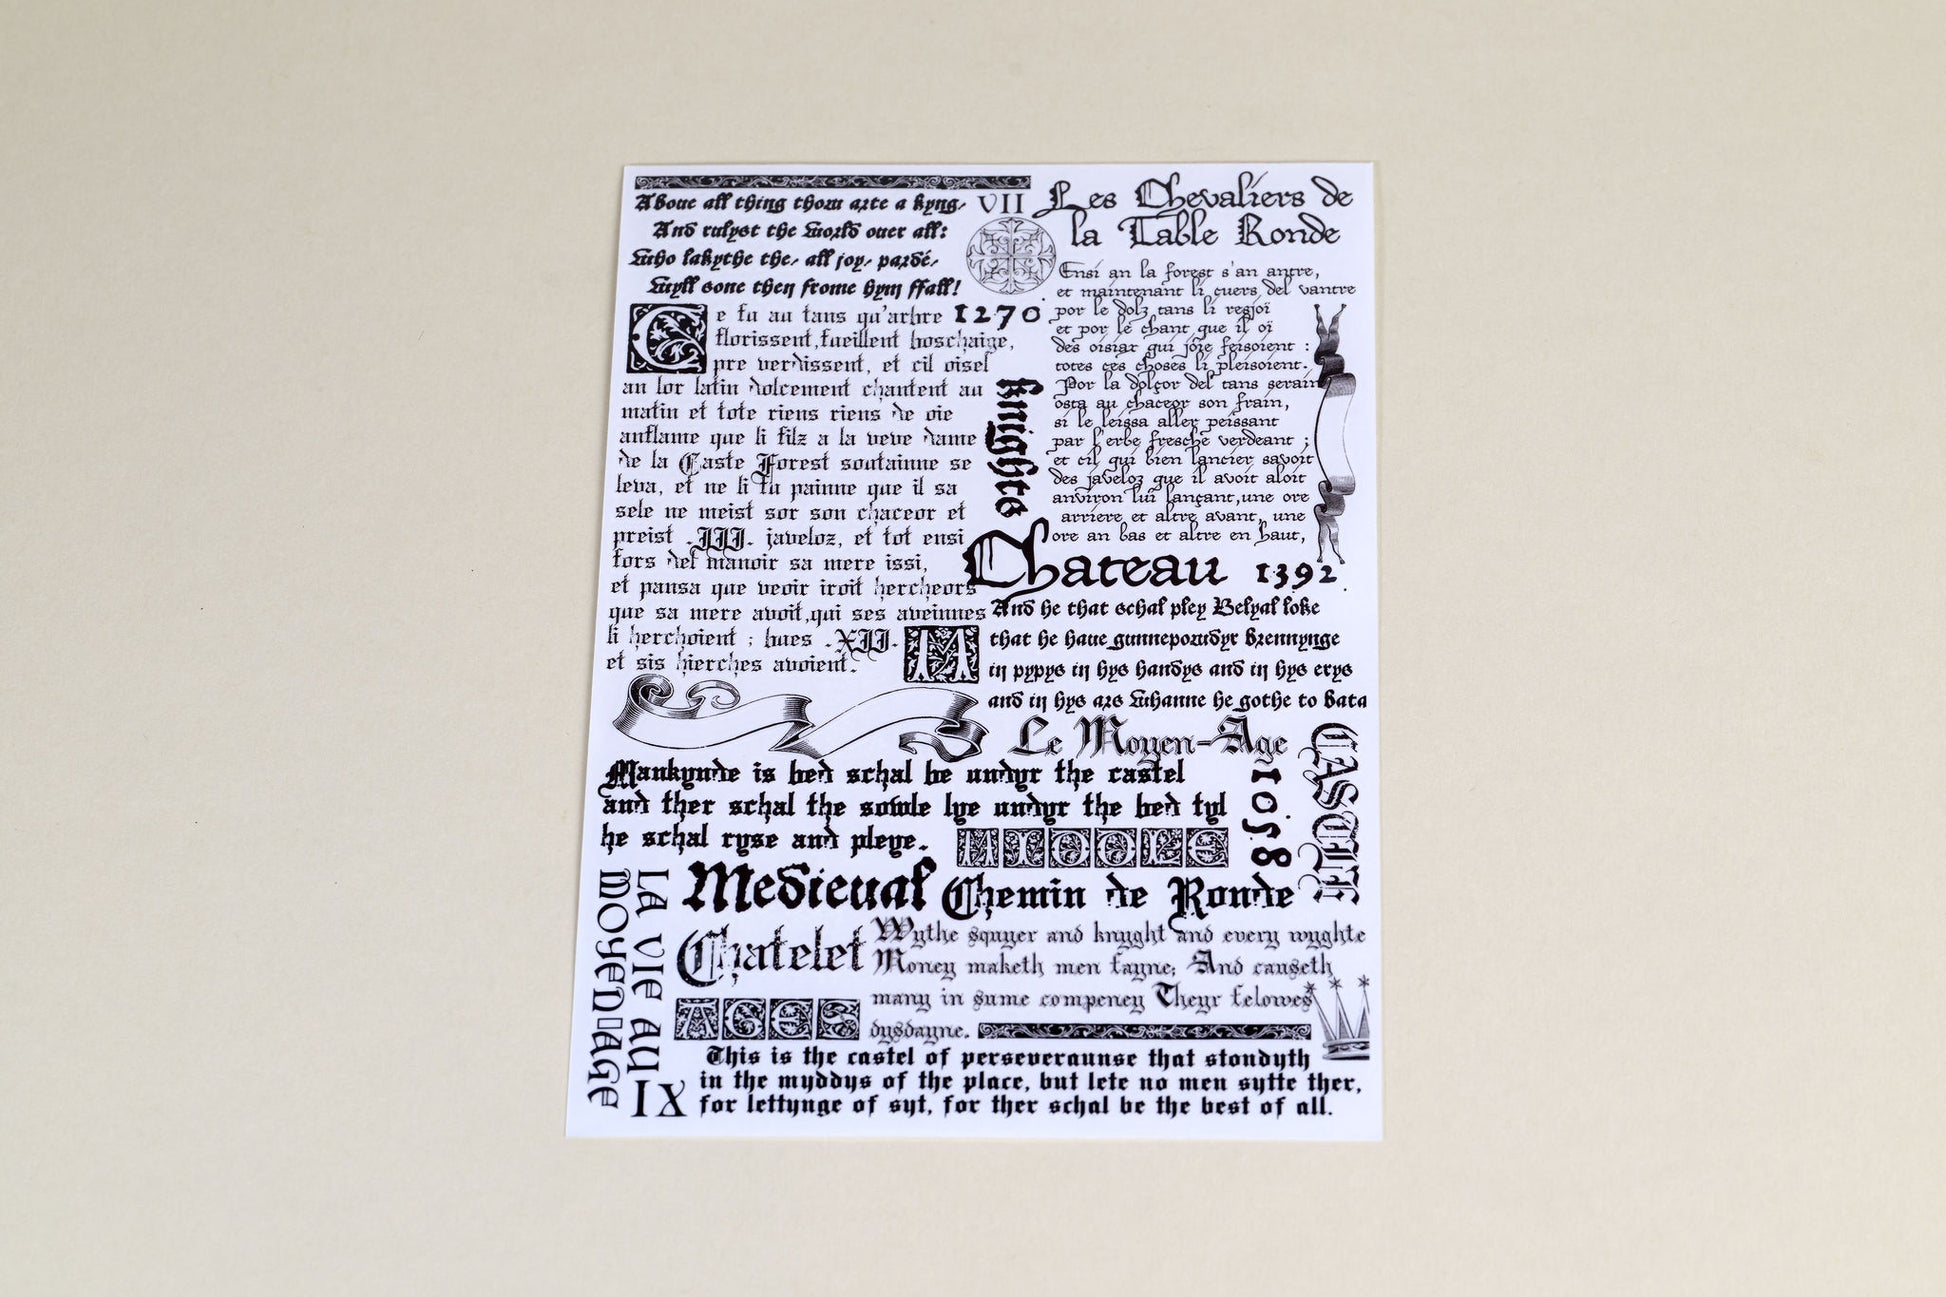 Aboue all thing thow arte a kyng,
And rulyst the world ouer all:
Who lakythe the, all joy, pardé,
Wyll sone then frome hym ffall!
VII
Les Chevaliers de
la Table Ronde
Ce fu au tans qu'arbre
florissent, fueillent boschaige,
pre verdissent, et cil oisel
an lor latin dolcement chantent au
matin et tote riens riens de oie
anflame que li filz a la veve dame
de la Gaste Forest soutainne se
leva, et ne li fu painne que il sa
sele ne meist sor son chaceor et
preist .III. javeloz, et tot ensi
fors del manoir sa mere issi,
et pansa que veoir iroit hercheors
que sa mere avoit, qui ses aveinnes
li herchoient ; bues .XII.
et sis hierches avoient.
1270
Knights
Ensi an la forest s'an antre,
et maintenant li cuers del vantre
por le dolz tans li resjoï
et por le chant que il oï
des oisiax qui joie feisoient :
totes ces choses li pleisoient.
Por la dolçor del tans serain
osta au chaceor son frain,
si le leissa aller peissant
par l'erbe fresche verdeant ;
et cil qui bien lancier savoit
des javeloz que il avoit aloit
anviron lui lançant, une ore
arriere et altre avant, une
ore an bas et altre en haut,
Chateau
1392
M
And he that schal pley Belyal loke
that he haue gunnepowdyr brennynge
in pypys in hys handys and in hys erys
and in hys ars whanne he gothe to bata
Le Moyen-Age
CASTLE
1058
Mankynde is bed schal be undyr the castel
and ther schal the sowle lye undyr the bed tyl
he schal ryse and pleye.
MIDDLE
Medieval
Chemin de Ronde
LA VIE AU
MOYEN AGE
Chatelet
Wythe squyer and knyght and every wyghte
Money maketh men fayne; And causeth
many in sume compeney Theyr felowes
dysdayne.
AGES
IX
This is the castel of perseveraunse that stondyth
in the myddys of the place, but lete no men sytte ther,
for lettynge of syt, for ther schal be the best of all.